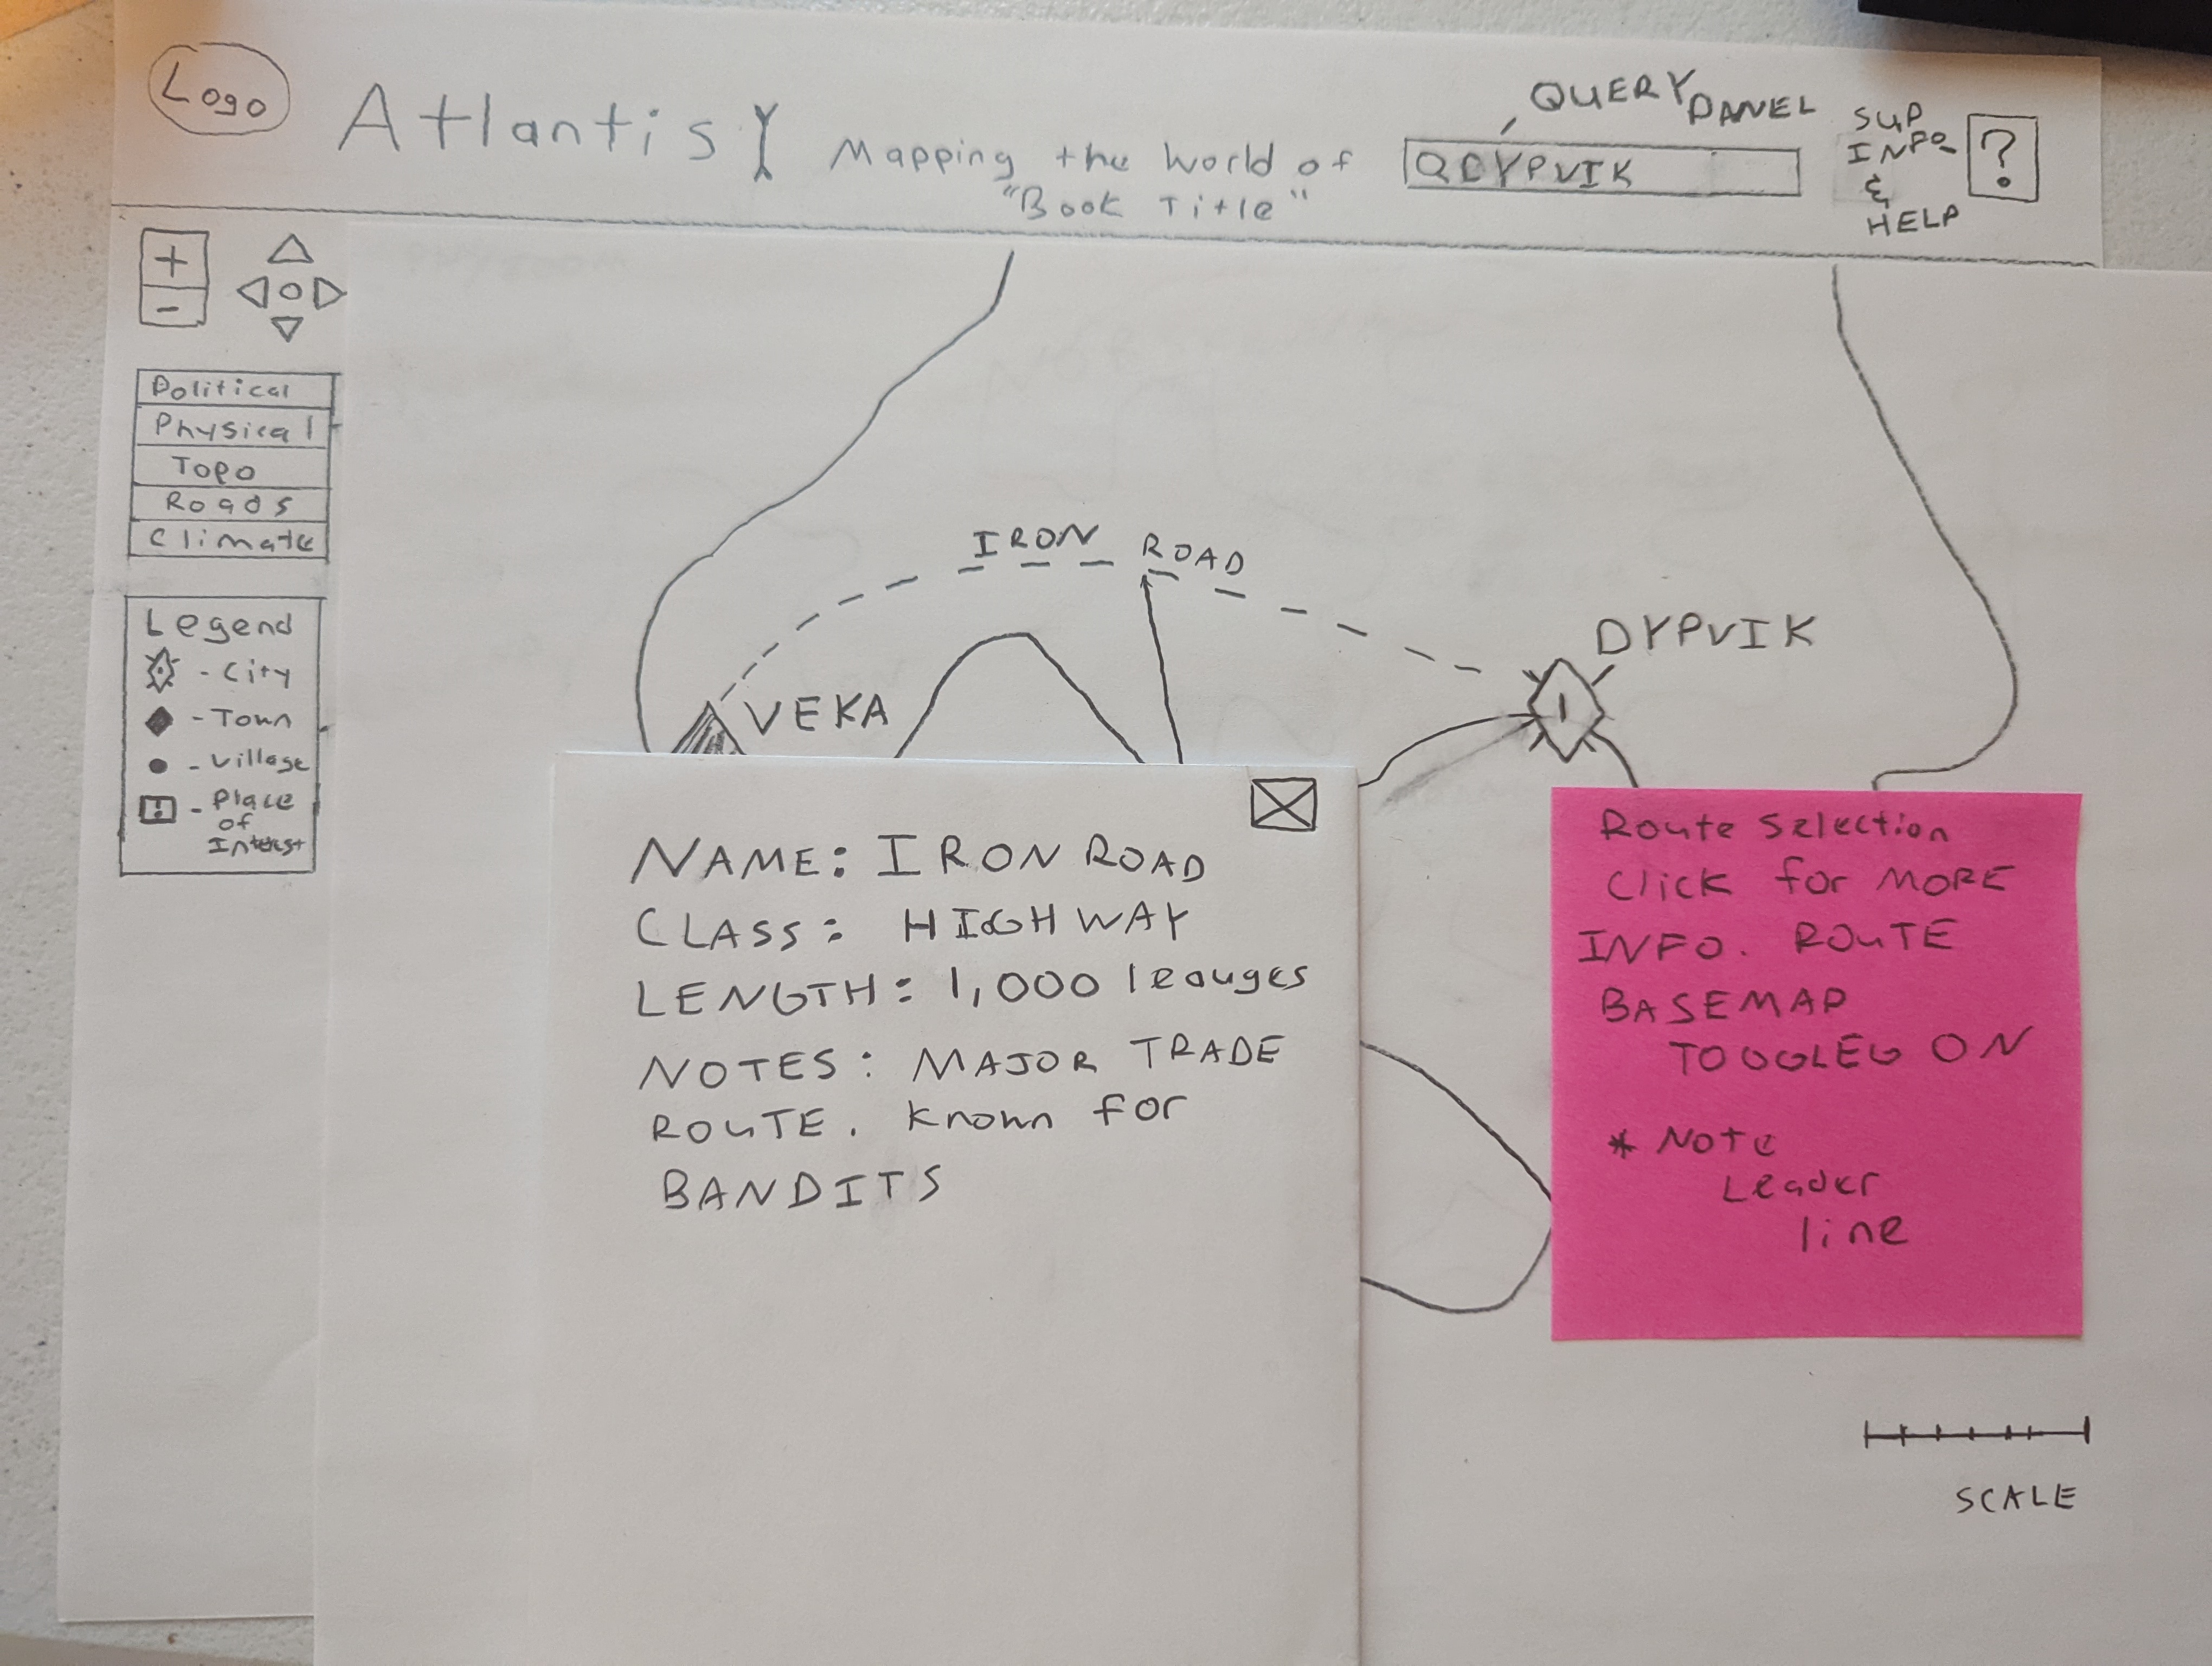 Logo
Atlantis
Mapping the World of
"Book Title"
QUERY PANEL
QDYPVIK
SUP
INFO
&
HELP
?
+
-
Political
Physical
Topo
Roads
Climate
Legend
- City
- Town
- Village
- Place
of
Interest
IRON ROAD
DYPVIK
VEKA
NAME: IRON ROAD
CLASS: HIGHWAY
LENGTH: 1,000 leauges
NOTES: MAJOR TRADE
ROUTE. Known for
BANDITS
Route Selection
Click for MORE
INFO. ROUTE
BASEMAP
TOGGLED ON
* Note
Leader
line
SCALE